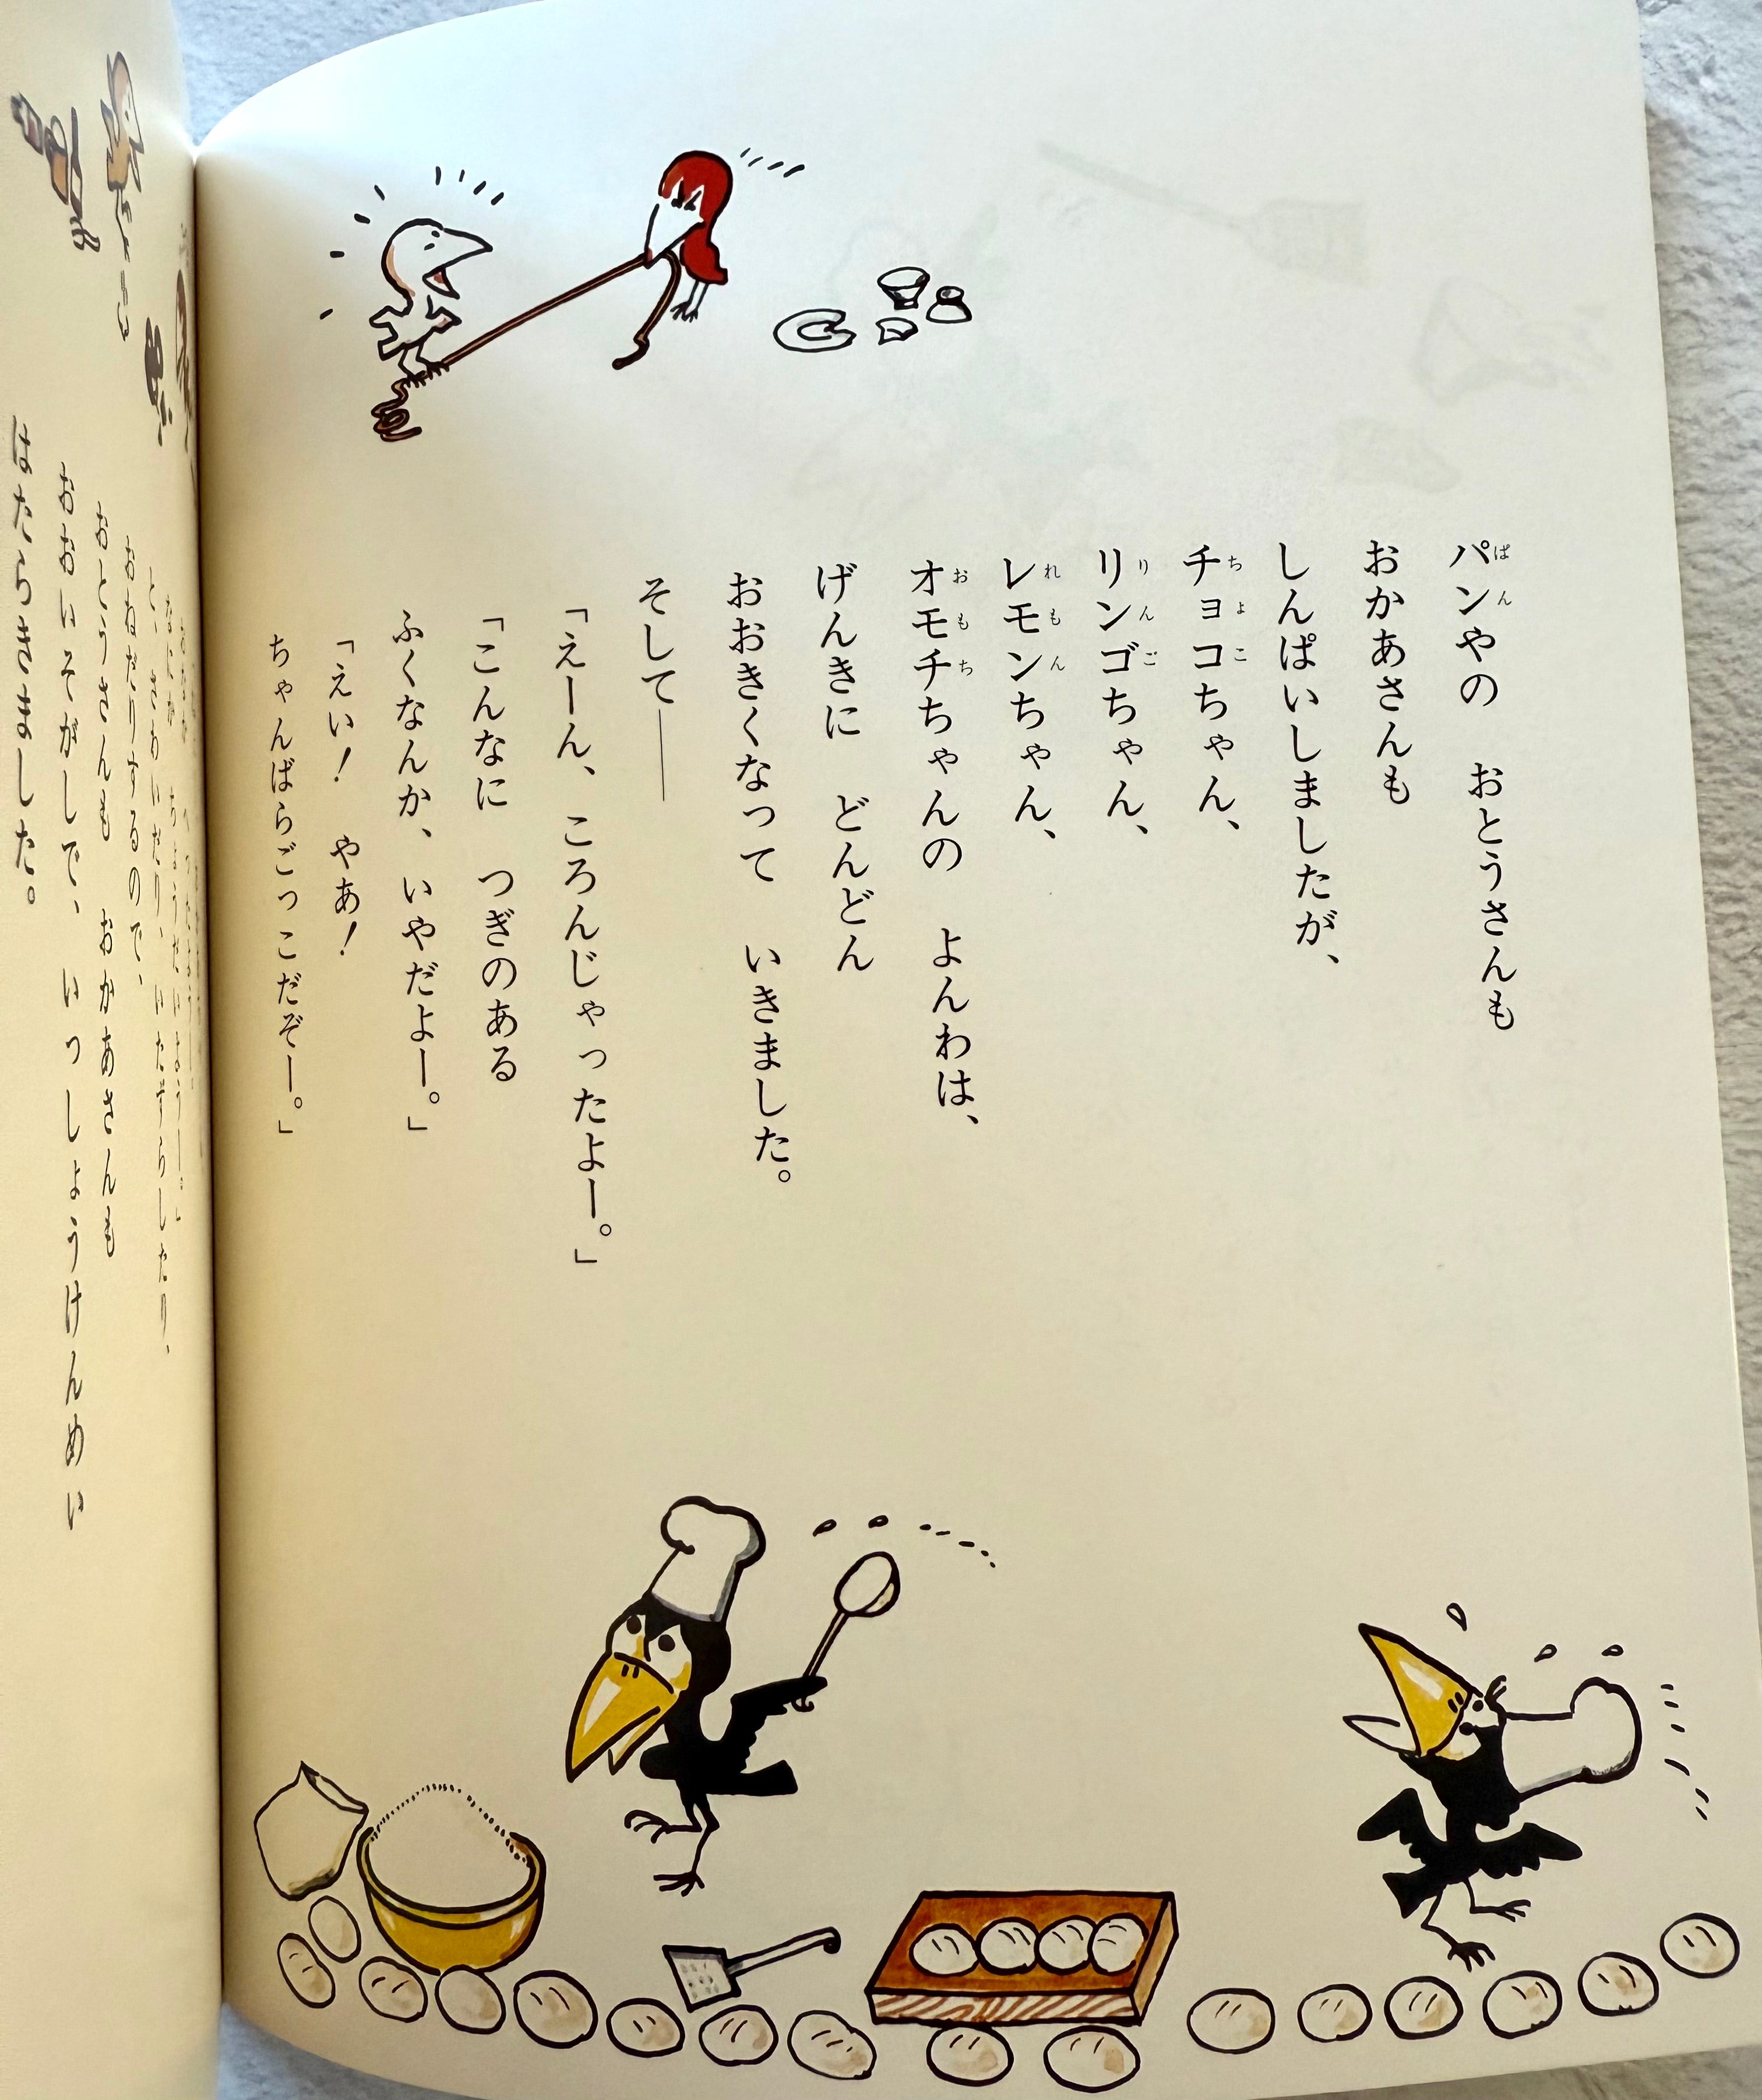 パンやの　おとうさんも
おかあさんも
しんぱいしましたが、
チョコちゃん、
リンゴちゃん、
レモンちゃん、
オモチちゃんの　よんわは、
げんきに　どんどん
おおきくなって　いきました。
そして——
「えーん、ころんじゃったよー。」
「こんなに　つぎのある
ふくなんか、いやだよー。」
「えい！　やあ！
ちゃんばらごっこだぞー。」
と、さわいだり、いたずらしたり、
おねだりするので、
おとうさんも　おかあさんも
おおいそがしで、いっしょうけんめい
はたらきました。